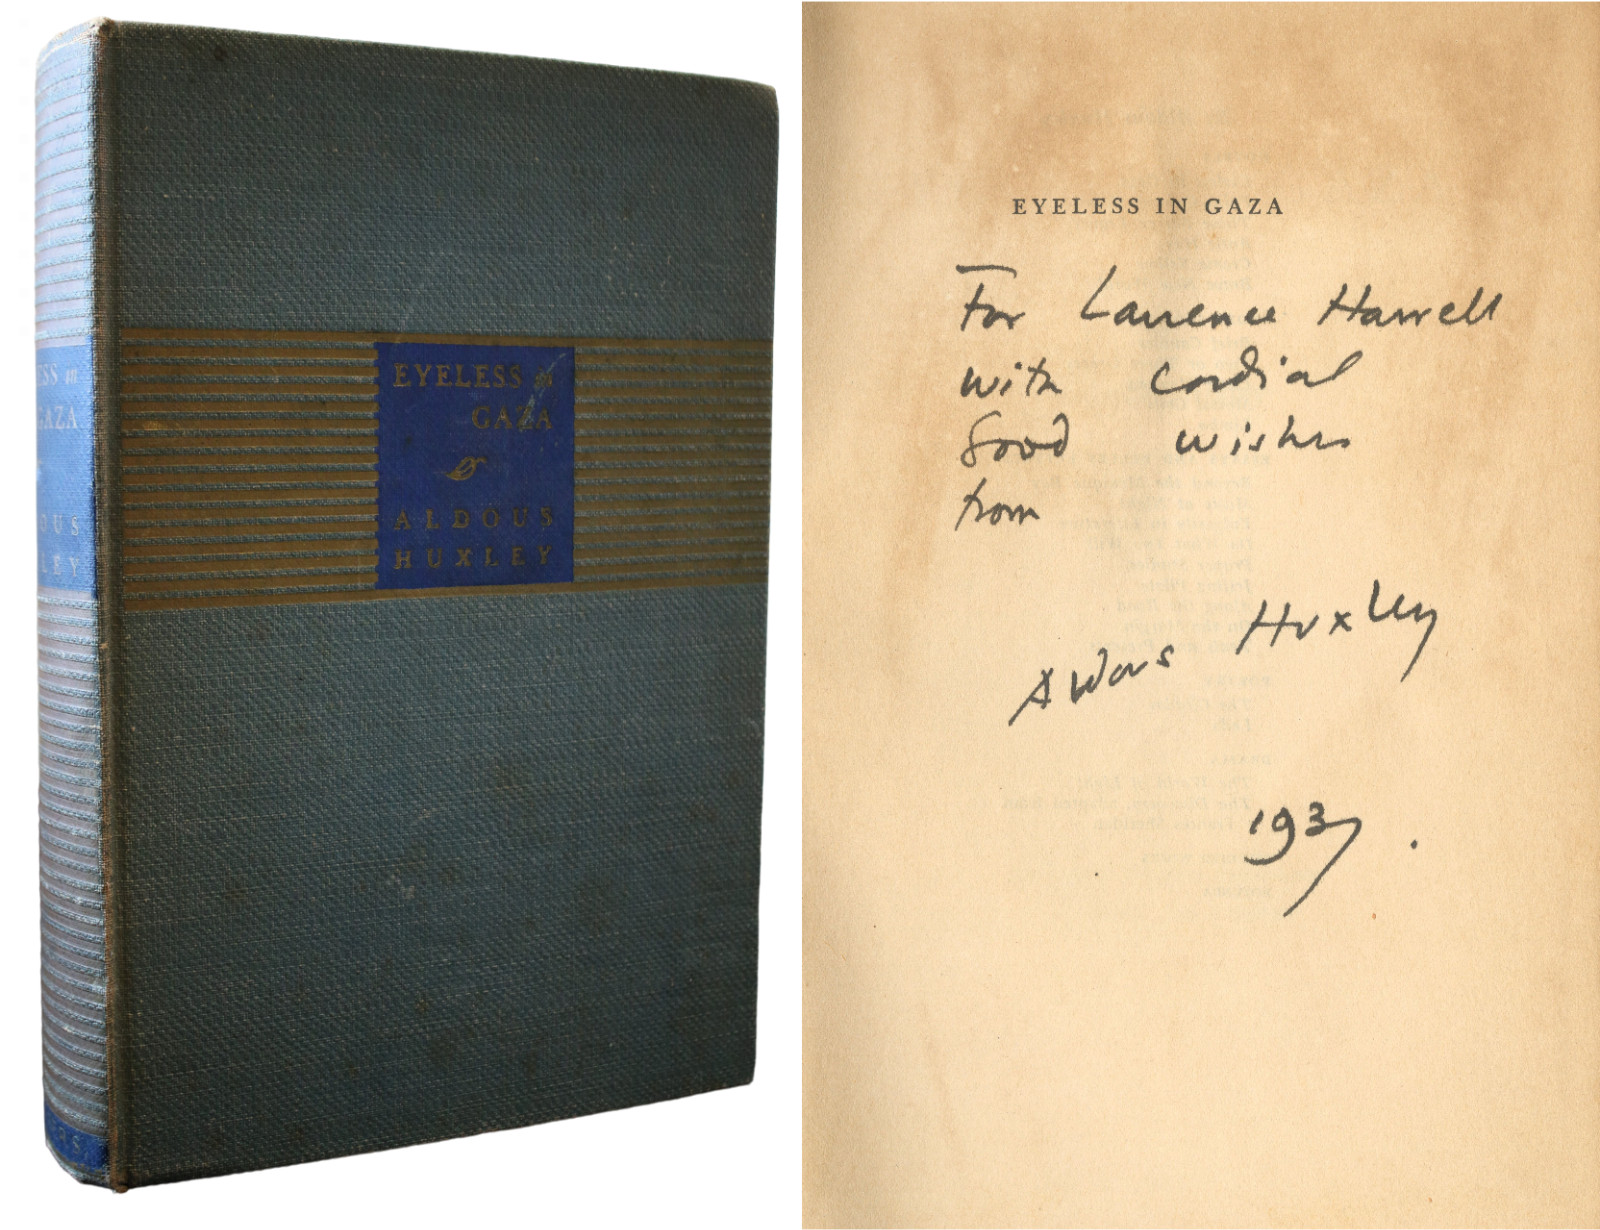 SS in
GAZA
OUS
LEY
RS.
EYELESS in
GAZA
ALDOUS
HUXLEY
EYELESS IN GAZA
For Laurence Harrell
with cordial
good wishes
from
Aldous Huxley
1937.